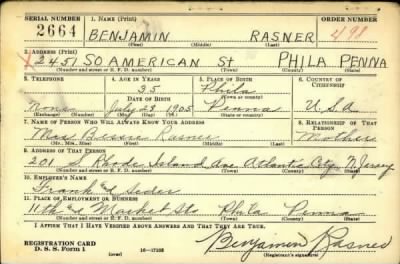 SERIAL NUMBER 1. NAME (Print) ORDER NUMBER
2664 BENJAMIN RASNER 491
(First) (Middle) (Last)
2. ADDRESS (Print)
2451 SO AMERICAN St PHILA PENNA
(Number and street or R. F. D. number) (Town) (County) (State)
3. TELEPHONE 4. AGE IN YEARS 5. PLACE OF BIRTH 6. COUNTRY OF CITIZENSHIP
35 Phila
DATE OF BIRTH (Town or county)
None July 23 1905 Penna U.S.A
(Exchange) (Number) (Mo.) (Day) (Yr.) (State or country)
7. NAME OF PERSON WHO WILL ALWAYS KNOW YOUR ADDRESS 8. RELATIONSHIP OF THAT PERSON
Mrs Bessie Rasner Mother
(Mr., Mrs., Miss) (First) (Middle) (Last)
9. ADDRESS OF THAT PERSON
201 S. Rhode Island Ave Atlantic City N. Jersey
(Number and street or R. F. D. number) (Town) (County) (State)
10. EMPLOYER'S NAME
Frank & Seder
11. PLACE OF EMPLOYMENT OR BUSINESS
11th & Market Sts Phila Penna
(Number and street or R. F. D. number) (Town) (County) (State)
I AFFIRM THAT I HAVE VERIFIED ABOVE ANSWERS AND THAT THEY ARE TRUE.
REGISTRATION CARD
D. S. S. Form 1 (over) 16—17105 Benjamin Rasner
(Registrant's signature)